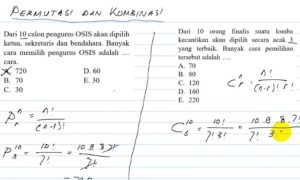 PERMUTASI DAN KOMBINASI
Dari 10 calon pengurus OSIS akan dipilih
ketua, sekretaris dan bendahara. Banyak
cara memilih pengurus OSIS adalah ....
cara.
A. 720 D. 60
B. 70 E. 30
C. 30
P n r = n! / (n-r)!
P 10 3 = 10! / 7! = 10.9.8.7! / 7!
Dari 10 orang finalis suatu lomba
kecantikan akan dipilih secara acak 3
yang terbaik. Banyak cara pemilihan
tersebut adalah ....
A. 70
B. 80
C. 120
D. 160
E. 220
C n r = n! / (n-r)! r!
C 10 3 = 10! / 7! 3! = 10.9.8.7! / 7! 3.